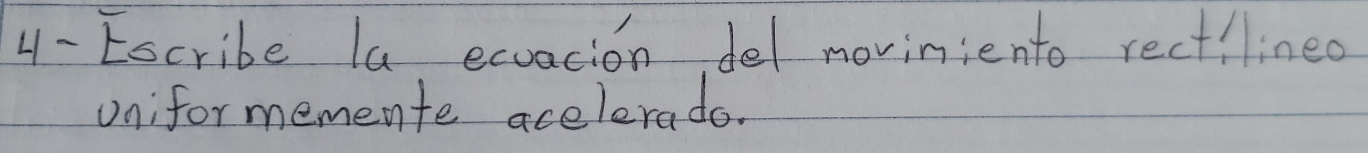 4- Escribe la ecuación del movimiento rectilineo
uniformemente acelerado.